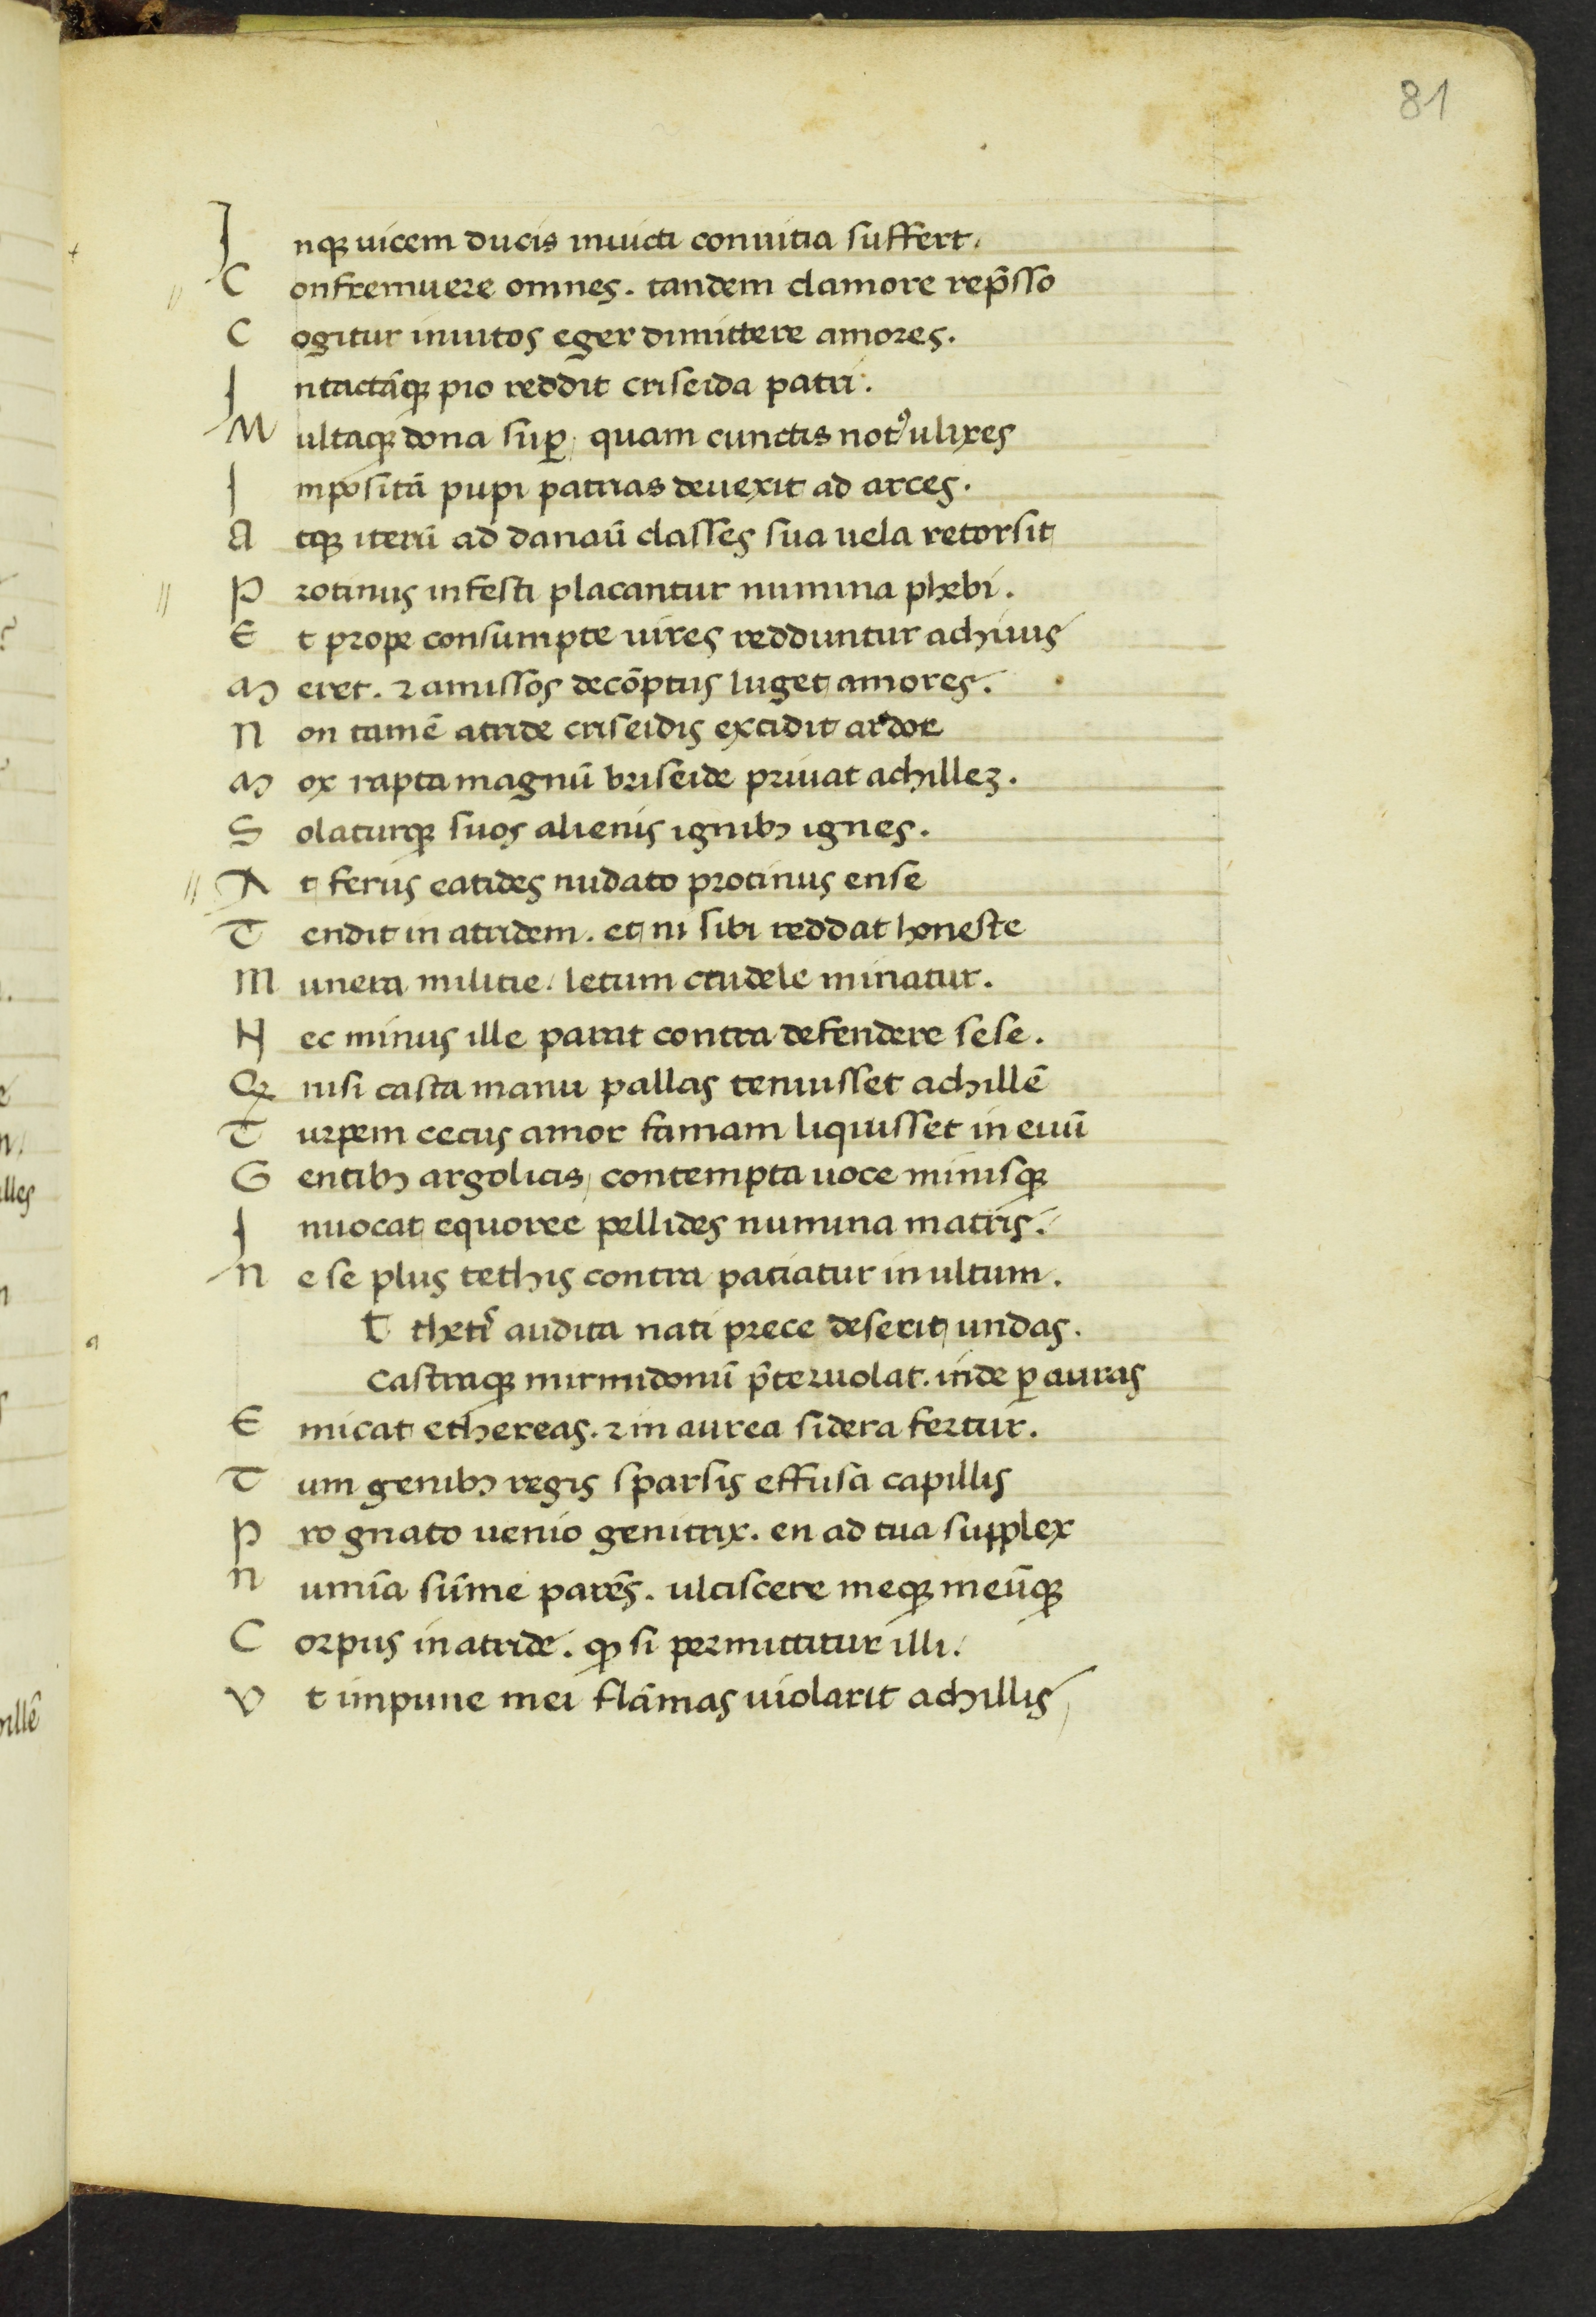 81
Inqꝫ uicem ducis inuicti conuitia suffert.
Confremuere omnes. tandem clamore rep̄sso
Cogitur inuitos eger dimittere amores.
Intactāqꝫ pio reddit criseida patri.
Multaqꝫ dona suꝑ, quam cunctis notꝰ ulixes
Impositā pupi patrias deuexit ad arces.
Atqꝫ iterū ad danaū classes sua uela retorsit
Protinus infesti placantur numina phebi.
Et prope consumpte uires redduntur achiuis
Meret. ⁊ amissos decōptus luget amores.
Non tamē atride criseidis excidit ardor
Mox rapta magnū briseide priuat achilleꝫ.
Solaturqꝫ suos alienis ignibꝫ ignes.
At ferus eatides nudato protinus ense
Tendit in atridem. et ni sibi reddat honeste
Munera militie / letum crudele minatur.
Nec minus ille parat contra defendere sese.
Qꝫ nisi casta manu pallas tenuisset achillē
Turpem cecus amor famam liquisset in euū
Gentibꝫ argolicis / contempta uoce minisqꝫ
Inuocat equoree pellides numina matris.
Ne se plus tethis contra patiatur inultum.
T thetis audita nati prece deserit undas.
Castraqꝫ mirmidonū p̄teruolat. inde ꝑ auras
Emicat ethereas. ⁊ in aurea sidera fertur.
Tum genibꝫ regis sparsis effusa capillis
Pro gnato uenio genitrix. en ad tua supplex
Numīa sūme parēs. ulciscere meqꝫ meūqꝫ
Corpus in atride. ꝙ si permittitur illi.
Vt impune mei flāmas uiolarit achillis